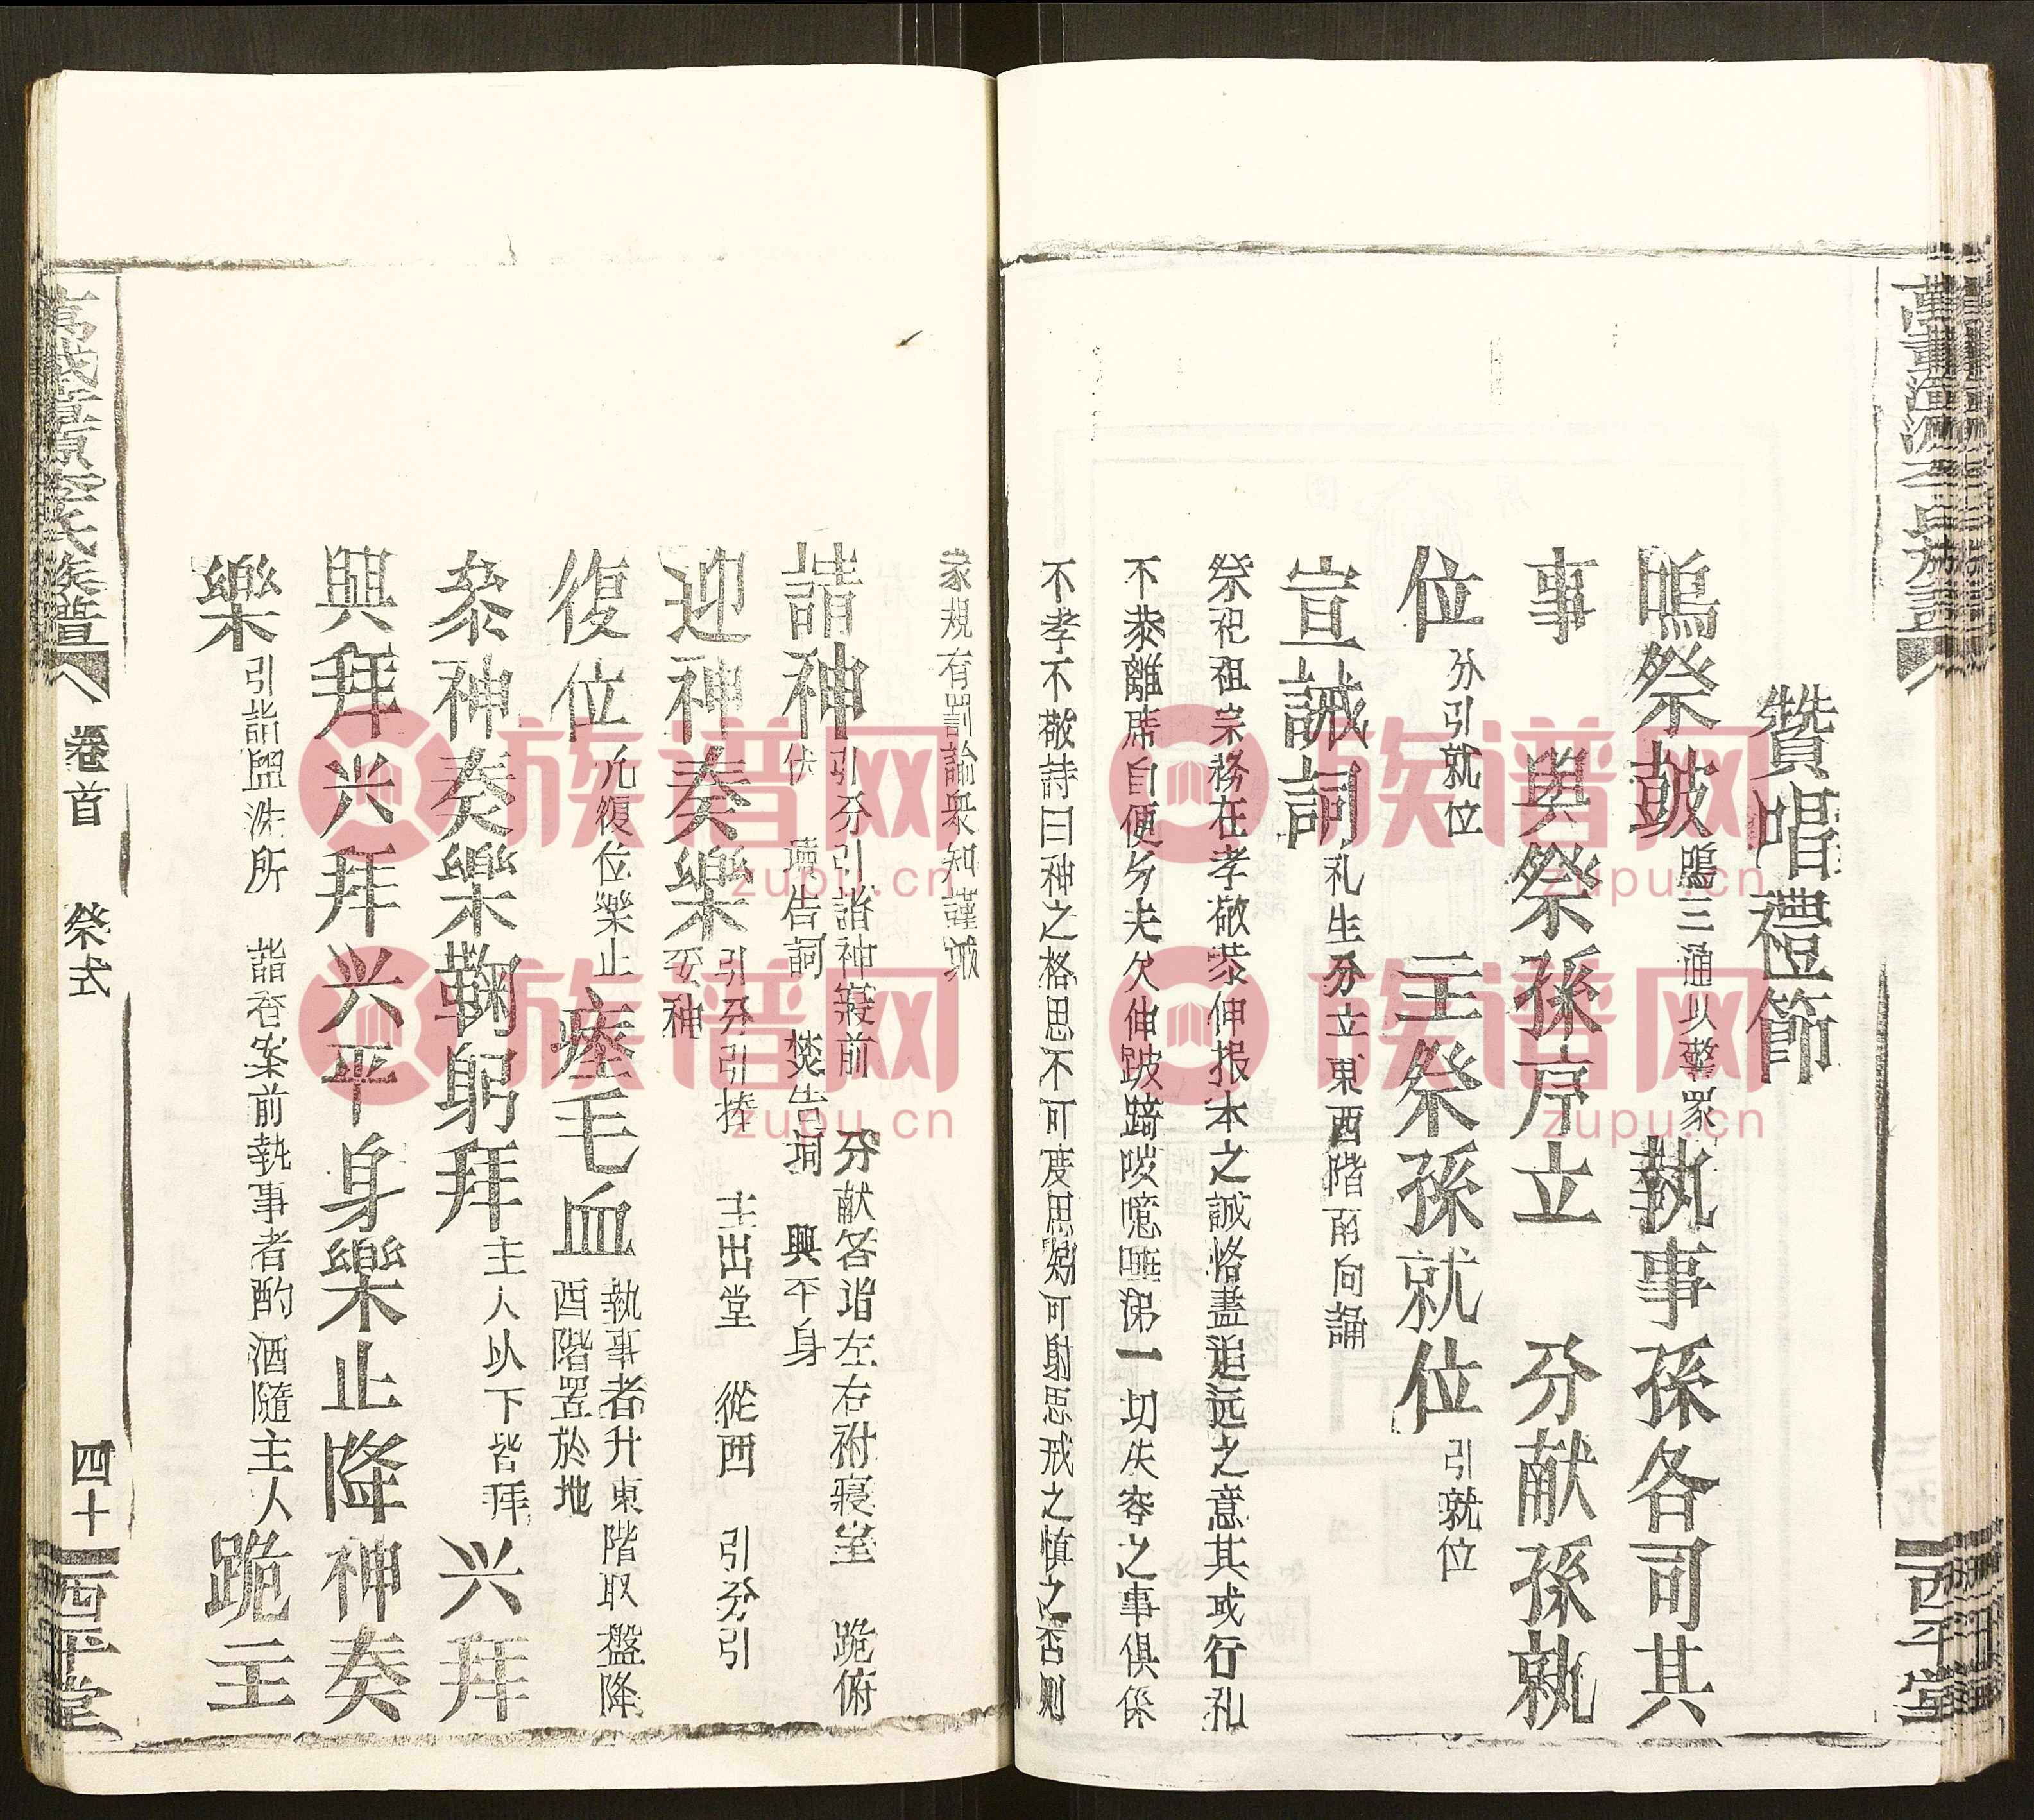 贊唱禮節
鳴祭鼓 鳴三通以警眾 執事孫各司其
事 與祭孫序立 分献孫就
位 分引就位 主祭孫就位 引就位
宣誡詞 礼生分立東西階兩向誦
祭祀祖宗務在孝敬恭伸报本之誠恪盡追远之意其或行礼
不恭離席自便与夫欠伸跛踦噫唾涕一切失容之事俱係
不孝不敬詩曰神之格思不可度思矧可射思戒之慎之否则
家規有罰諭眾知謹誡
詣神 引分引詣神寢前 分献各詣左右祔寢室 跪俯
伏 讀告詞 焚告詞 興平身
迎神奏樂 引分引捧 主出堂 從西 引分引
安神
復位 元復位樂止 瘞毛血 執事者升東階取盤降
西階置於地
参神奏樂鞠躬拜 主人以下皆拜 兴拜
興拜兴拜兴平身樂止降神奏
樂 引詣盥洗所 詣香案前執事者酌酒隨主人 跪主
卷首 祭式 四十
西平堂
西平堂
族谱网
zupu.cn
族谱网
zupu.cn
族谱网
zupu.cn
族谱网
zupu.cn